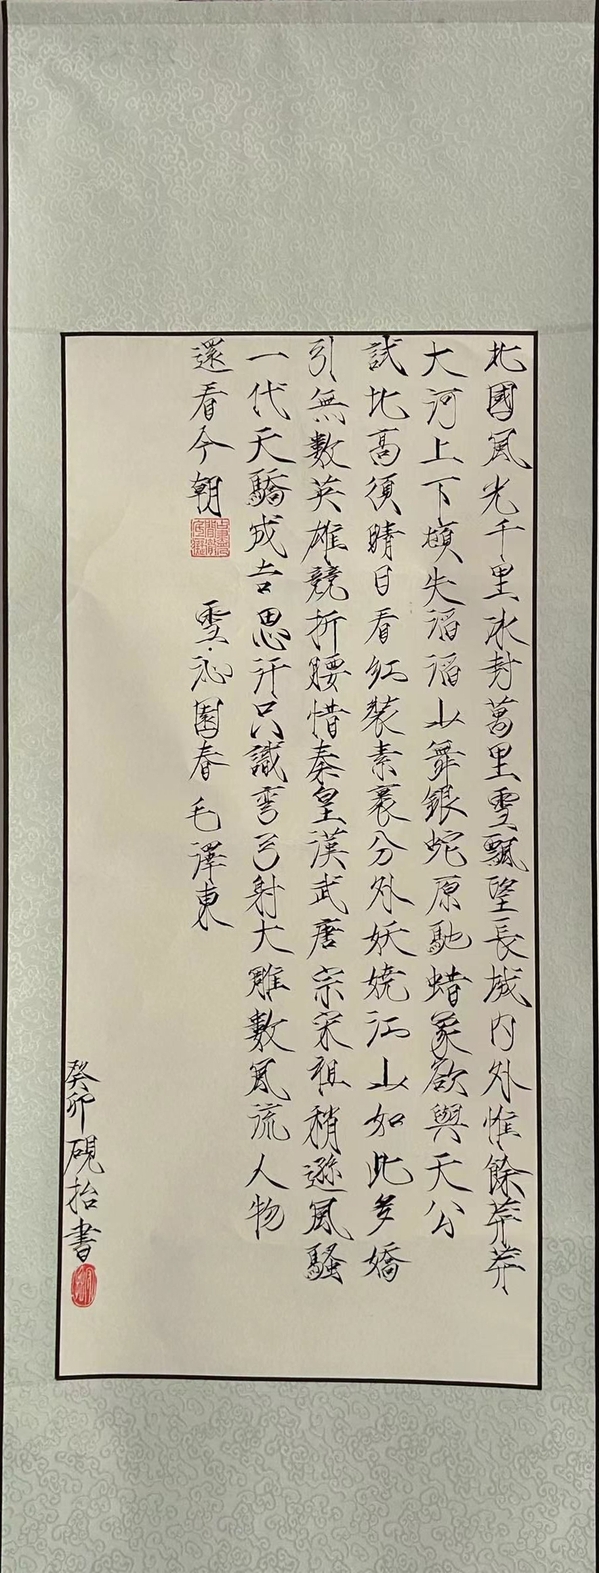 北國風光千里冰封萬里雪飄望長城內外惟餘莽莽
大河上下頓失滔滔山舞銀蛇原馳蜡象欲與天公
試比高須晴日看紅裝素裹分外妖嬈江山如此多嬌
引無數英雄競折腰惜秦皇漢武唐宗宋祖稍遜風騷
一代天驕成吉思汗只識彎弓射大雕數風流人物
還看今朝 雪·沁園春 毛澤東
癸卯硯抬書